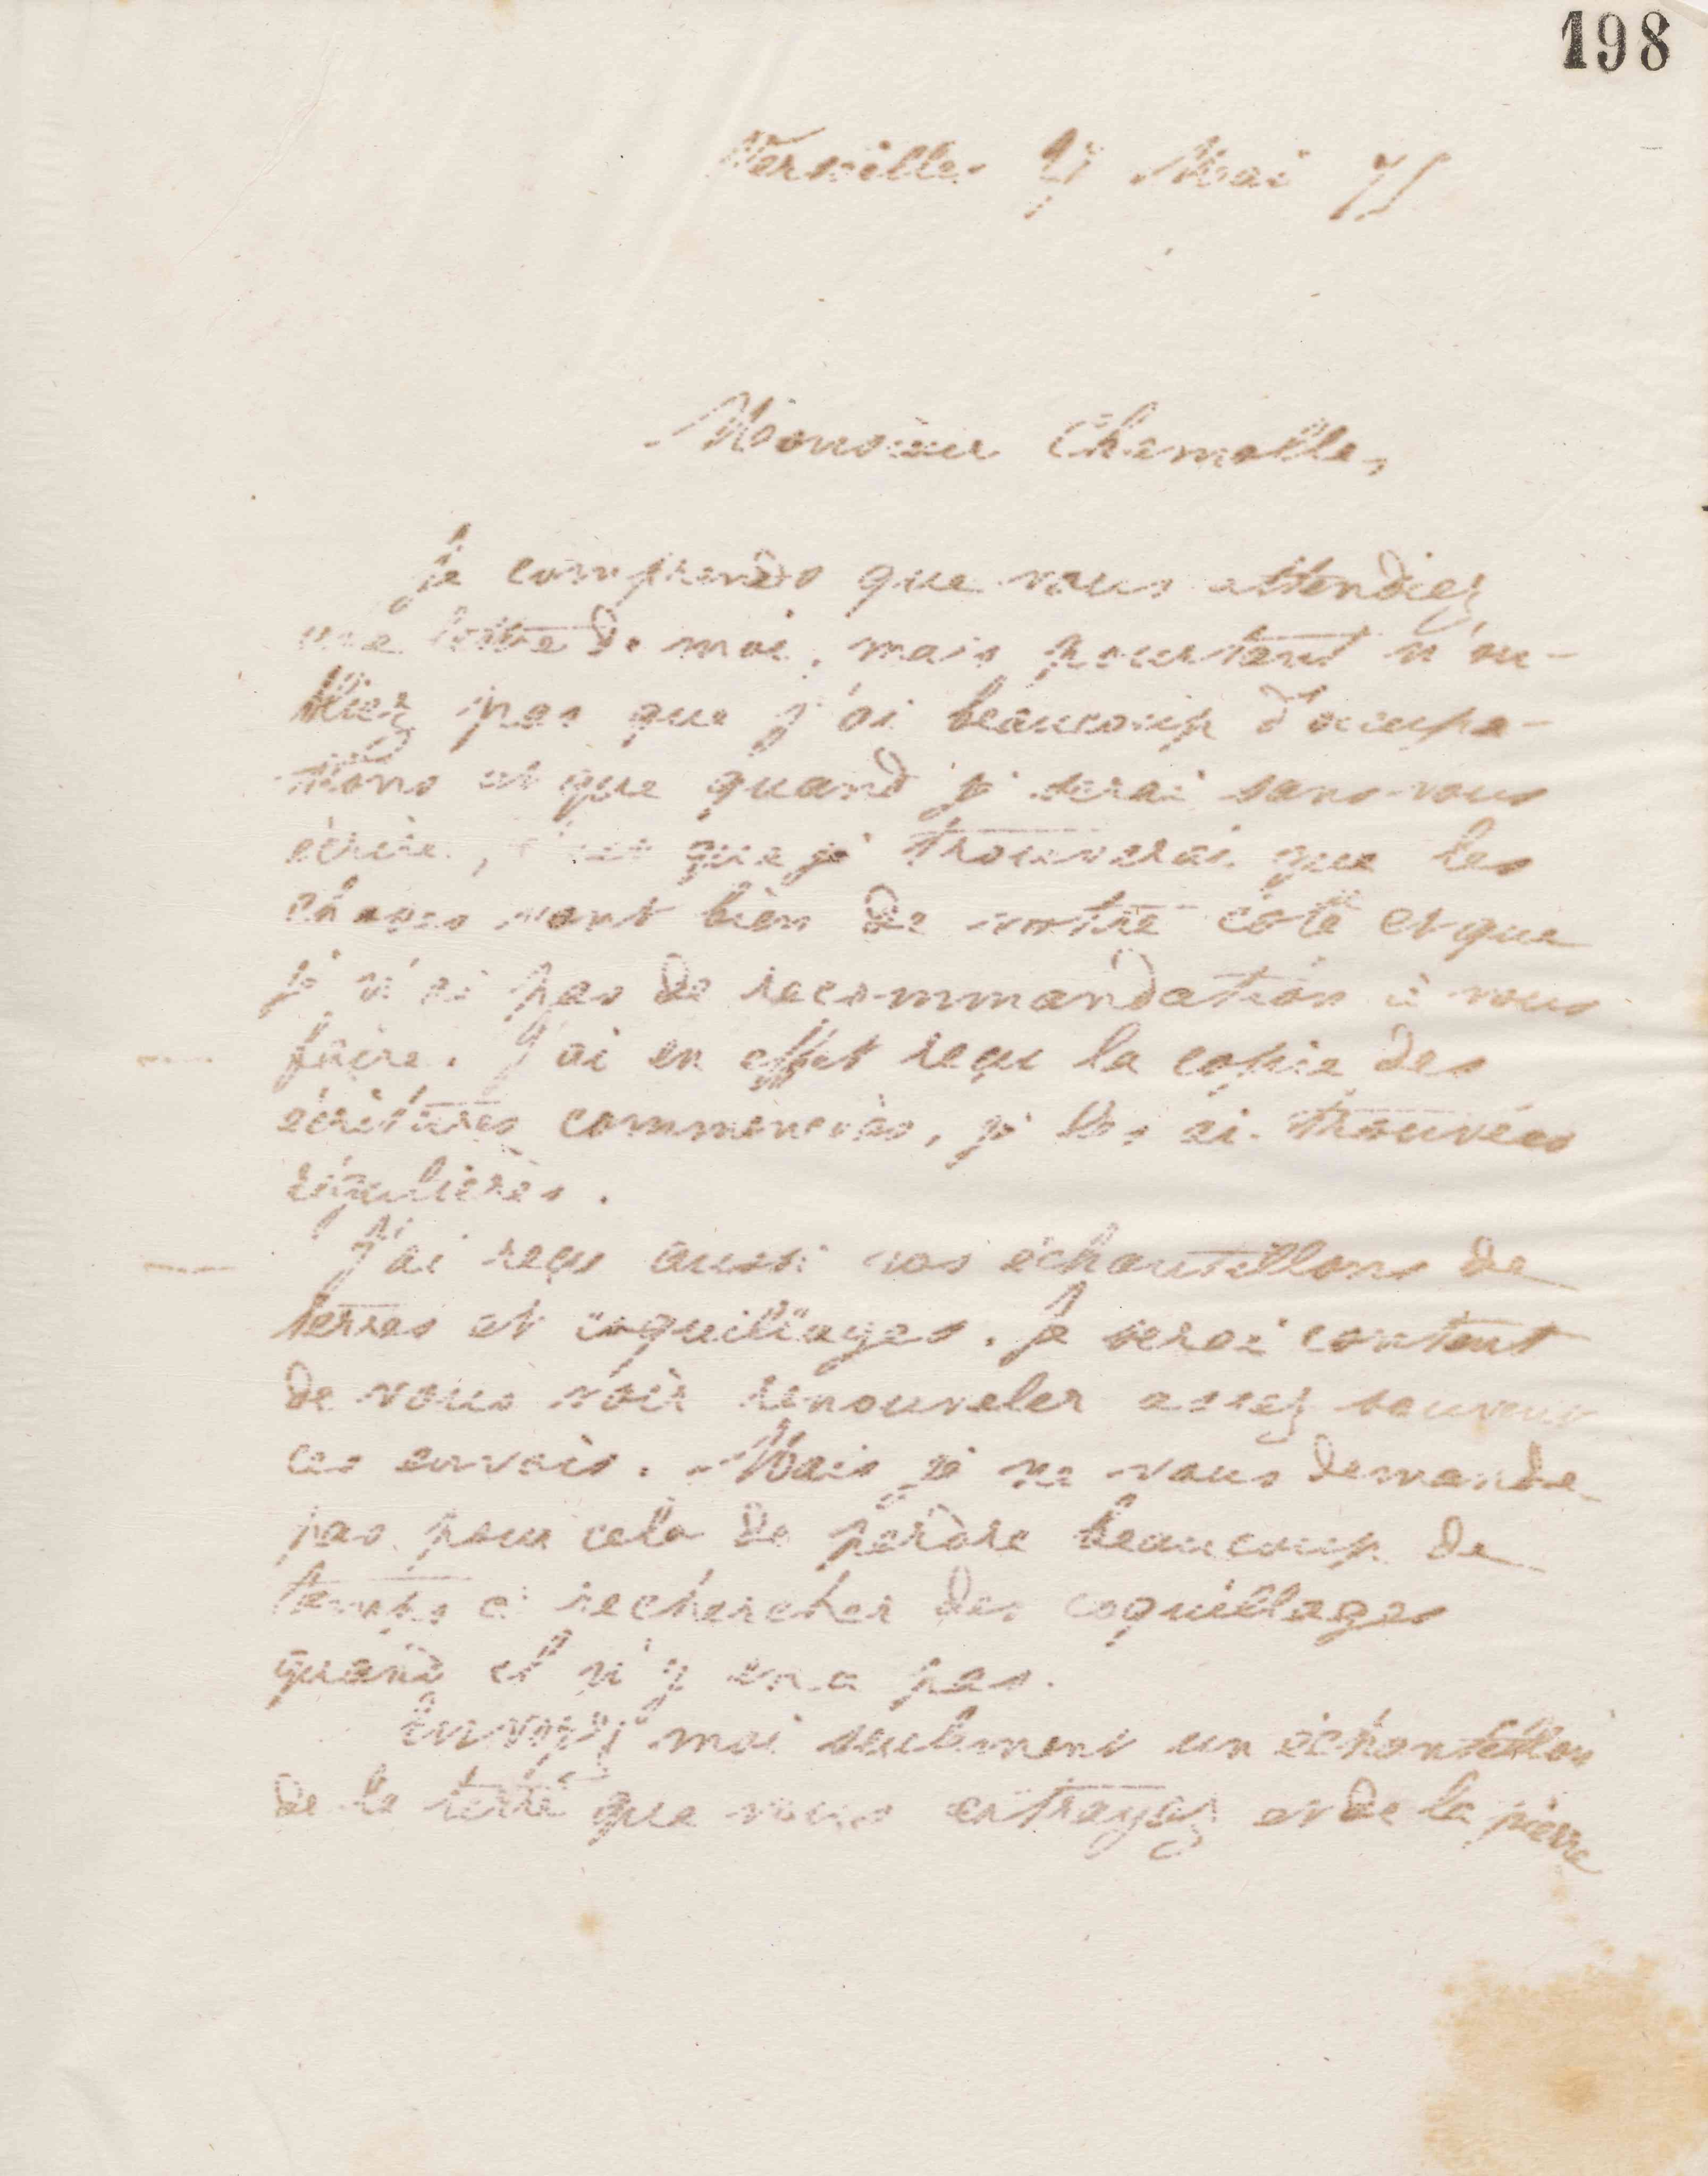 198
Versailles Mai 75
Monsieur Chamolle,
Je comprends que vous attendiez
une lettre de moi, mais pourtant n'ou-
bliez pas que j'ai beaucoup d'occupa-
tions et que quand je serai sans vous
écrire, c'est que je trouverai que les
choses vont bien de votre côté et que
je n'ai pas de recommandation à vous
faire. J'ai en effet reçu la copie des
écritures commencées, je les ai trouvées
régulières.
J'ai reçu aussi vos échantillons de
terres et coquillages. Je serai content
de vous voir renouveler assez souvent
ces envois. Mais je ne vous demande
pas pour cela de perdre beaucoup de
temps à rechercher des coquillages
quand il n'y en a pas.
Envoyez moi seulement un échantillon
de la terre que vous extrayez et de la pierre